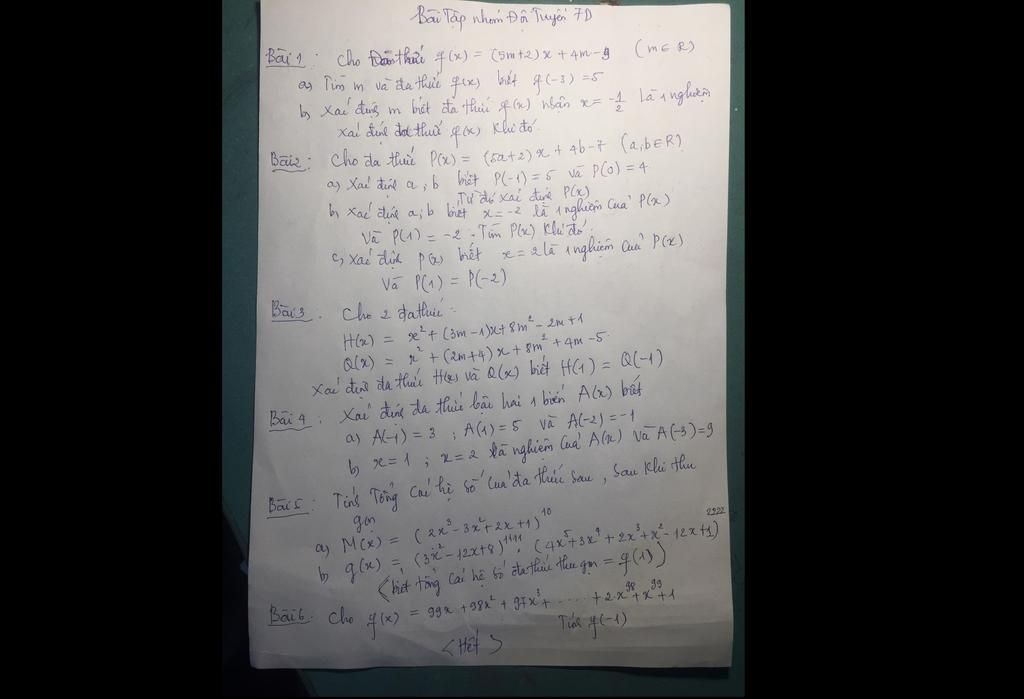 Bài Tập nhóm Đội Tuyển 7D
Bài 1: Cho Đa thức f(x) = (5m+2)x + 4m-9 (m∈R)
a) Tìm m và đa thức f(x) biết f(-3) = 5
b) Xác định m biết đa thức f(x) nhận x = -1/2 là 1 nghiệm
Xác định đa thức f(x) khi đó.
Bài 2: Cho đa thức P(x) = (5a+2)x + 4b-7 (a,b∈R)
a) Xác định a, b biết P(-1) = 5 và P(0) = 4
Từ đó xác định P(x)
b) Xác định a, b biết x = -2 là 1 nghiệm của P(x)
Và P(1) = -2. Tìm P(x) khi đó.
c) Xác định P(x) biết x = 2 là 1 nghiệm của P(x)
Và P(1) = P(-2)
Bài 3. Cho 2 đa thức:
H(x) = x² + (3m-1)x + 8m² - 2m + 1
Q(x) = x² + (2m+4)x + 8m² + 4m - 5.
Xác định đa thức H(x) và Q(x) biết H(1) = Q(-1)
Bài 4: Xác định đa thức bậc hai 1 biến A(x) biết
a) A(-1) = 3 ; A(1) = 5 và A(-2) = -1
b) x = 1 ; x = 2 là nghiệm của A(x) và A(-3) = 9
Bài 5: Tính Tổng các hệ số của đa thức sau, sau khi thu
gọn
a) M(x) = (2x³ - 3x² + 2x + 1)¹⁰
b) g(x) = (3x² - 12x + 8)¹¹¹¹ . (4x⁵ + 3x⁴ + 2x³ + x² - 12x + 1)²²²²
(biết tổng các hệ số đa thức thu gọn = f(1))
Bài 6: Cho f(x) = 99x + 98x² + 97x³ + ....... + 2x⁹⁸ + x⁹⁹ + 1
Tính f(-1)
<Hết>